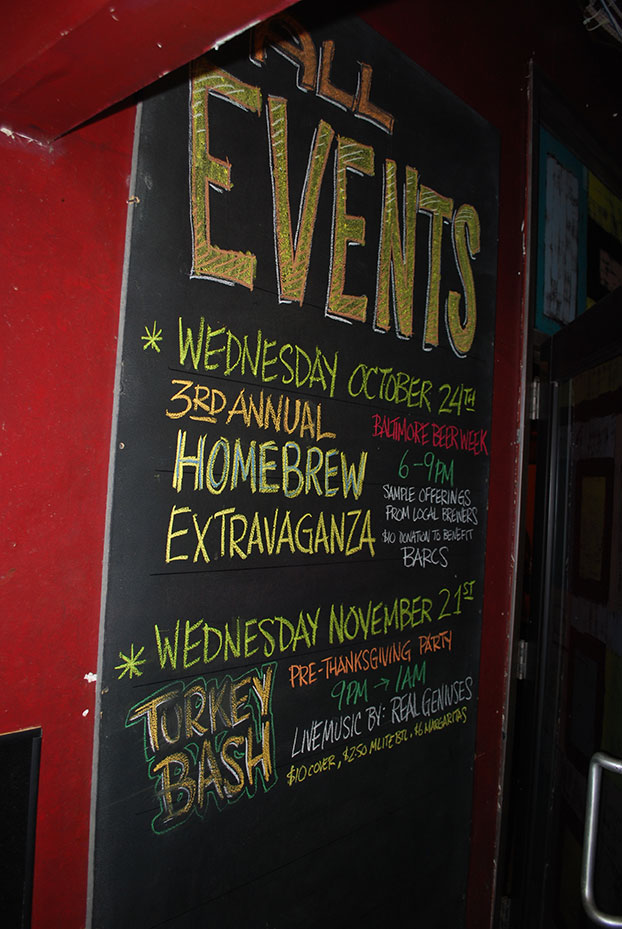 FALL
EVENTS
* WEDNESDAY OCTOBER 24TH
3RD ANNUAL
HOMEBREW
EXTRAVAGANZA
BALTIMORE BEER WEEK
6-9PM
SAMPLE OFFERINGS
FROM LOCAL BREWERS
$10 DONATION TO BENEFIT
BARCS
* WEDNESDAY NOVEMBER 21ST
TURKEY
BASH
PRE-THANKSGIVING PARTY
9PM → 1AM
LIVE MUSIC BY: REAL GENIUSES
$10 COVER, $2.50 MLITE BTL, $6 MARGARITAS